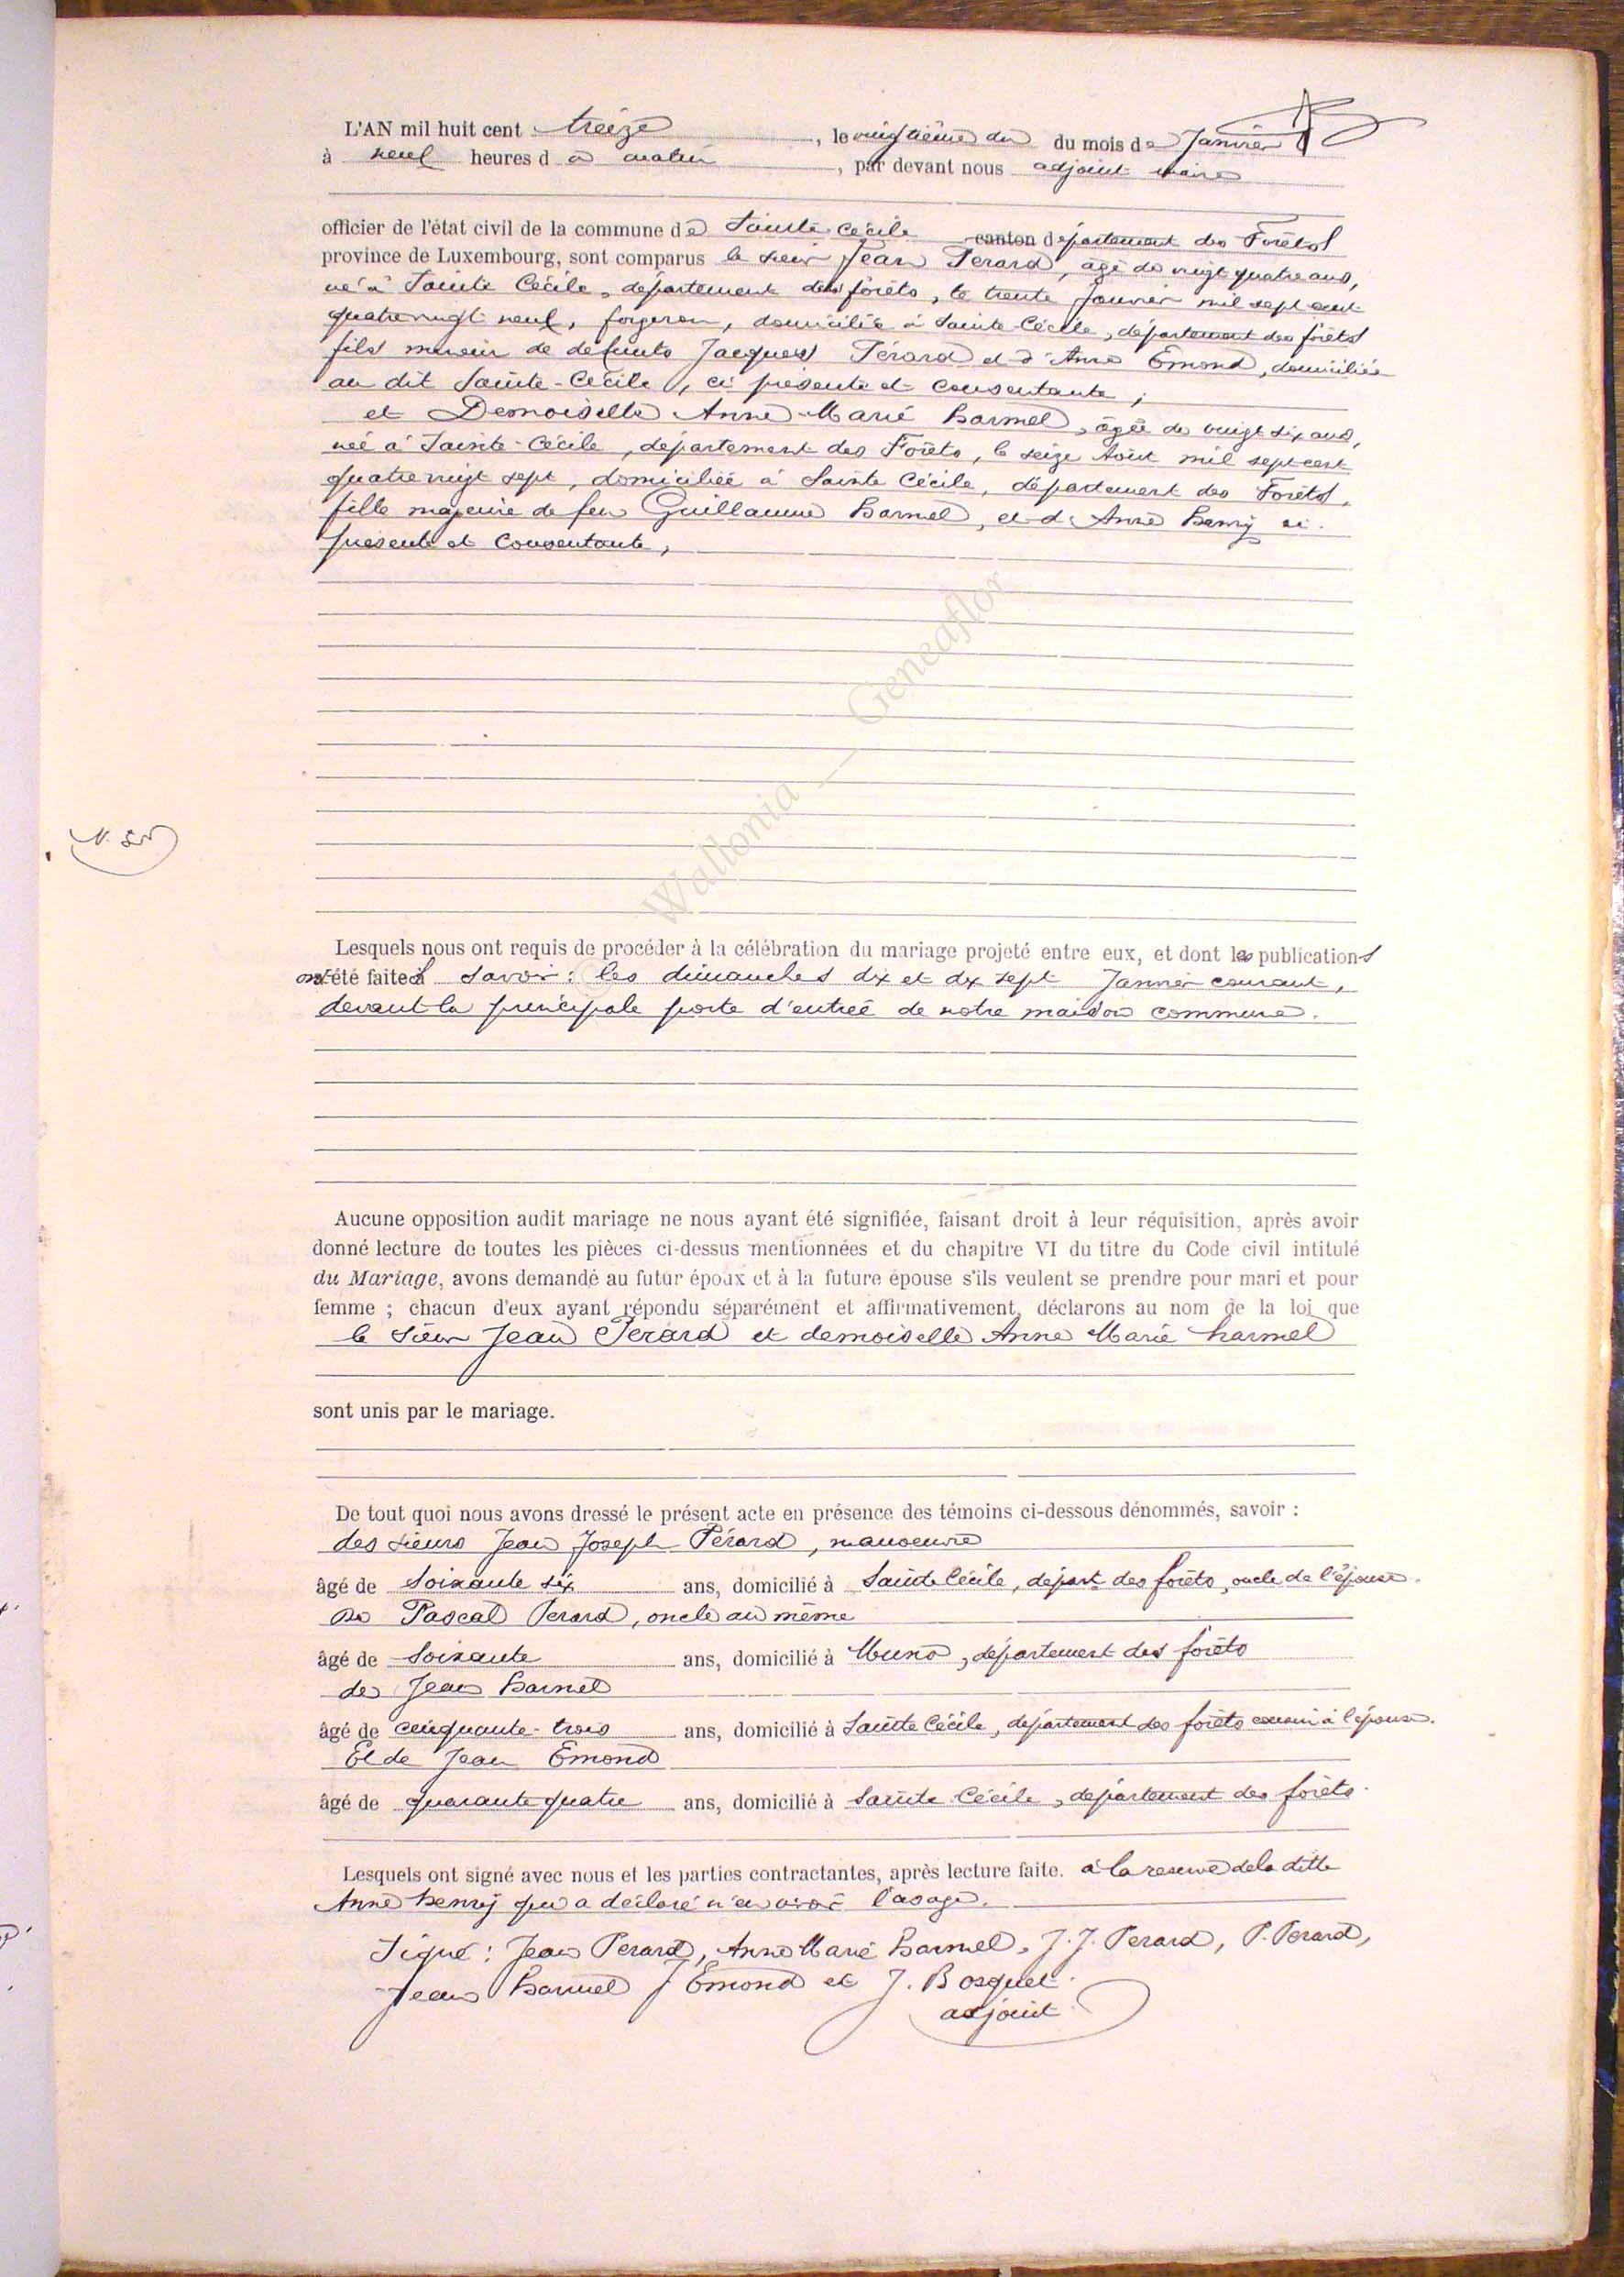 L'AN mil huit cent treize, le vingtième du du mois de Janvier
à neuf heures d u matin, par devant nous adjoint maire
officier de l'état civil de la commune de Sainte Cécile canton département des Forêts
province de Luxembourg, sont comparus le sieur Jean Perard, âgé de vingt quatre ans,
né à Sainte Cécile, département des forêts, le trente janvier mil sept cent
quatre vingt neuf, forgeron, domicilié à Sainte-Cécile, département des forêts
fils mineur de defunts Jacques Pérard et d'Anne Emond, domiciliée
au dit Sainte-Cécile, ci présente et consentante;
et Demoiselle Anne-Marie Harmel, âgée de vingt six ans,
née à Sainte-Cécile, département des Forêts, le seize Août mil sept cent
quatre vingt sept, domiciliée à Sainte Cécile, département des Forêts,
fille majeure de feu Guillaume Harmel, et d'Anne Henry ci-
présente et consentante,
Wallonia — Geneaflor
Lesquels nous ont requis de procéder à la célébration du mariage projeté entre eux, et dont les publications
ont été faites savoir: les dimanches dix et dix sept Janvier courant,
devant la principale porte d'entrée de notre maison commune.
Aucune opposition audit mariage ne nous ayant été signifiée, faisant droit à leur réquisition, après avoir
donné lecture de toutes les pièces ci-dessus mentionnées et du chapitre VI du titre du Code civil intitulé
du Mariage, avons demandé au futur époux et à la future épouse s'ils veulent se prendre pour mari et pour
femme ; chacun d'eux ayant répondu séparément et affirmativement, déclarons au nom de la loi que
le Sieur Jean Perard et demoiselle Anne Marie harmel
sont unis par le mariage.
De tout quoi nous avons dressé le présent acte en présence des témoins ci-dessous dénommés, savoir :
des sieurs Jean Joseph Pérard, manoeuvre
âgé de Soixante six ans, domicilié à Sainte Cécile, départ. des forêts, oncle de l'épouse.
De Pascal Perard, oncle au même
âgé de Soixante ans, domicilié à Muno, département des forêts
de Jean Harmel
âgé de cinquante-trois ans, domicilié à Sainte Cécile, département des forêts cousin à l'épouse.
Et de Jean Emond
âgé de quarante quatre ans, domicilié à Sainte Cécile, département des forêts.
Lesquels ont signé avec nous et les parties contractantes, après lecture faite. à la reserve de la ditte
Anne henry qui a déclaré n'en avoir l'usage.
Signé: Jean Perard, Anne Marie Harmel, J. J. Perard, P. Perard,
Jean Harmel J Emond et J. Bosquet.
adjoint